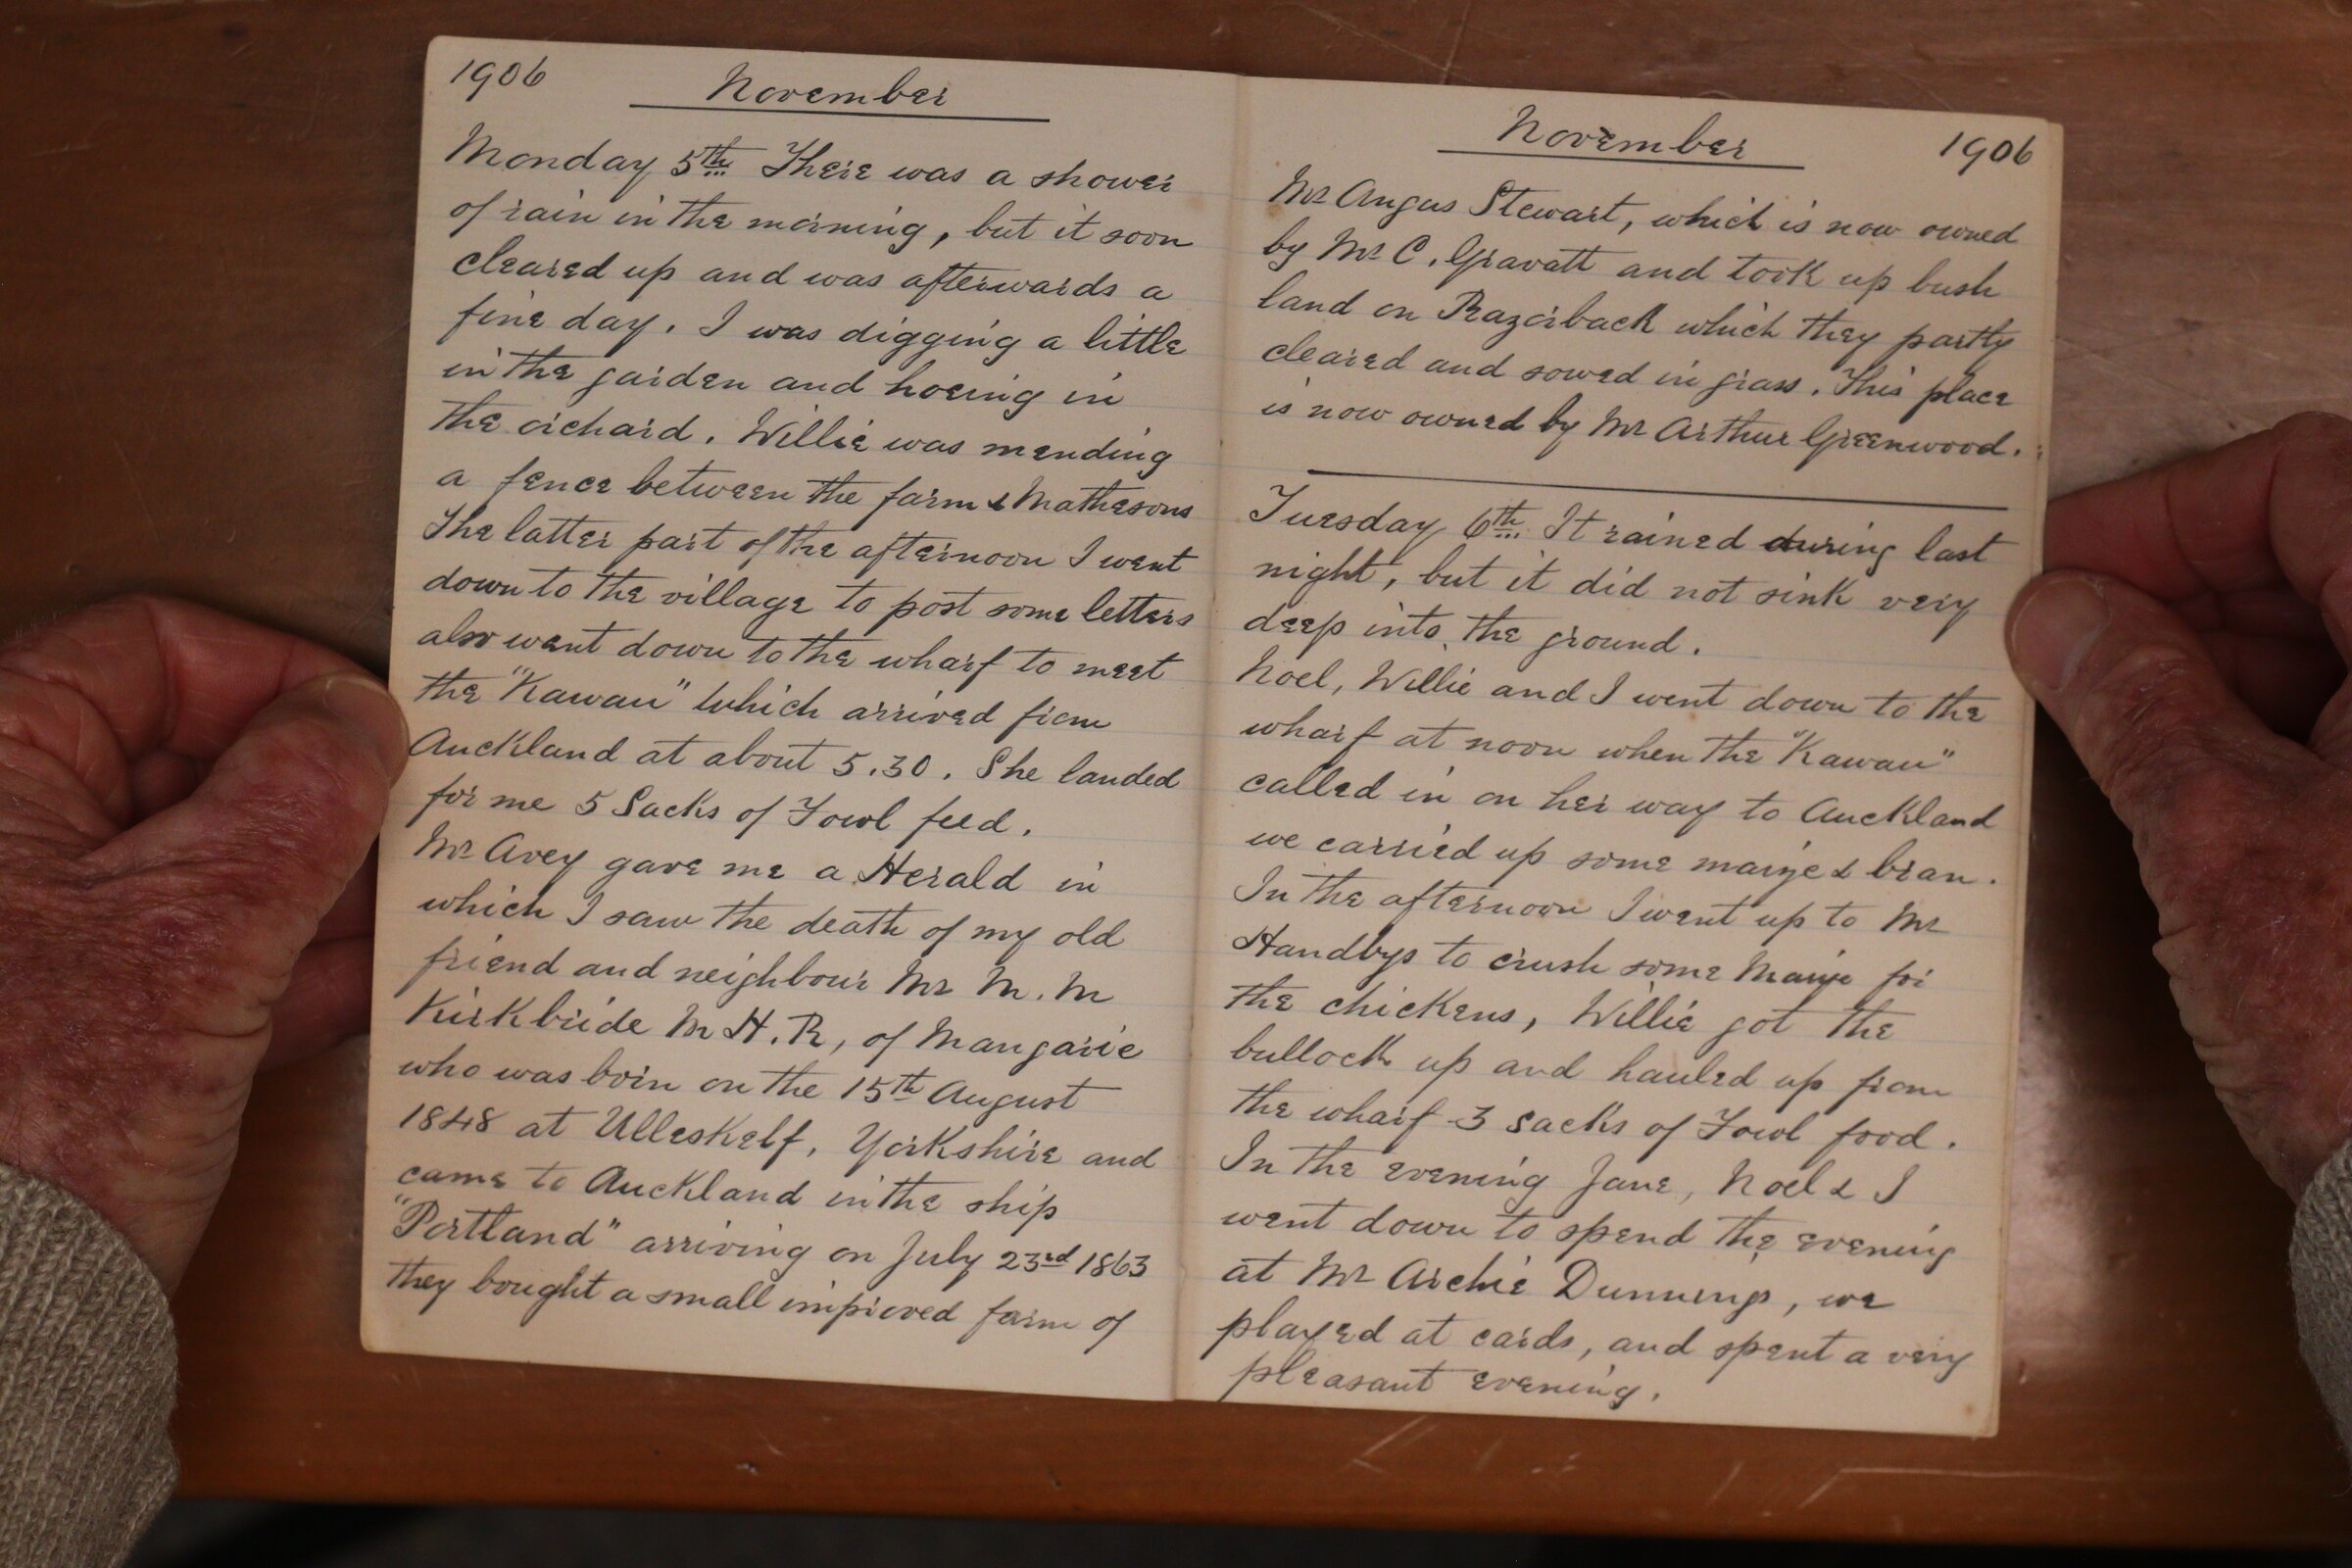 1906 November
Monday 5th There was a shower
of rain in the morning, but it soon
cleared up and was afterwards a
fine day. I was digging a little
in the garden and hoeing in
the orchard. Willie was mending
a fence between the farm & Mathesons
The latter part of the afternoon I went
down to the village to post some letters
also went down to the wharf to meet
the "Kawau" which arrived from
Auckland at about 5.30. She landed
for me 5 Sacks of Fowl feed.
Mr Avey gave me a Herald in
which I saw the death of my old
friend and neighbour Mr M. M
Kirkbride M H. R, of Mangarie
who was born on the 15th August
1848 at Ulleskelf, Yorkshire and
came to Auckland in the ship
"Portland" arriving on July 23rd 1863
they bought a small improved farm of
November 1906
Mr Angus Stewart, which is now owned
by Mr C. Gravatt and took up bush
land on Razorback which they partly
cleared and sowed in grass. This place
is now owned by Mr Arthur Greenwood.
Tuesday 6th It rained during last
night, but it did not sink very
deep into the ground.
Noel, Willie and I went down to the
wharf at noon when the "Kawau"
called in on her way to Auckland
we carried up some maize & bran.
In the afternoon I went up to Mr
Handbys to crush some Maize for
the chickens, Willie got the
bullock up and hauled up from
the wharf 3 sacks of Fowl food.
In the evening Jane, Noel & I
went down to spend the evening
at Mr Archie Dunnings, we
played at cards, and spent a very
pleasant evening.